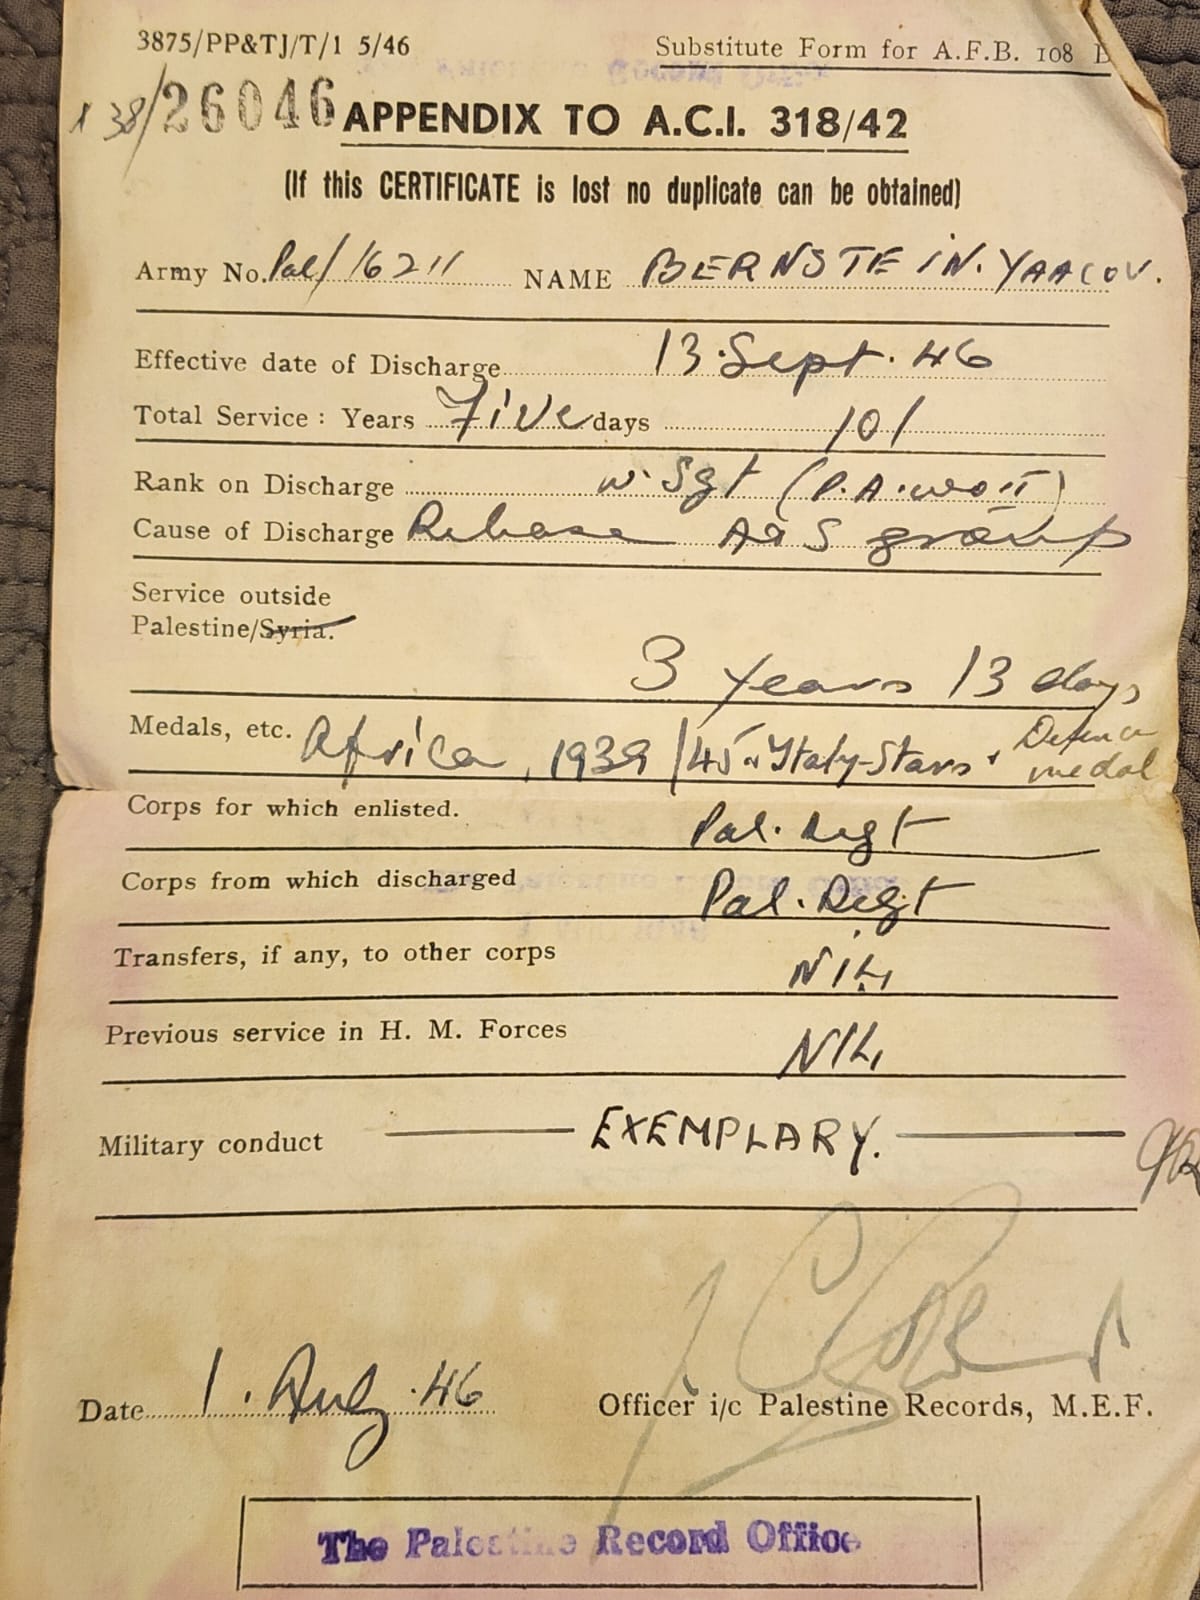 3875/PP&TJ/T/1 5/46
Substitute Form for A.F.B. 108
38/26046
APPENDIX TO A.C.I. 318/42
(If this CERTIFICATE is lost no duplicate can be obtained)
Army No. Pal/16211 NAME BERNSTEIN. YAACOV.
Effective date of Discharge 13. Sept. 46
Total Service : Years Five days 101
Rank on Discharge W. Sgt (P.A. WO II)
Cause of Discharge Release A & S group
Service outside
Palestine/Syria.
3 years 13 days
Medals, etc. Africa, 1939/45 & Italy-Stars + Defence medal
Corps for which enlisted. Pal. Regt
Corps from which discharged Pal. Regt
Transfers, if any, to other corps NIL
Previous service in H. M. Forces NIL
Military conduct EXEMPLARY.
Date 1. Aug. 46
Officer i/c Palestine Records, M.E.F.
The Palestine Record Office